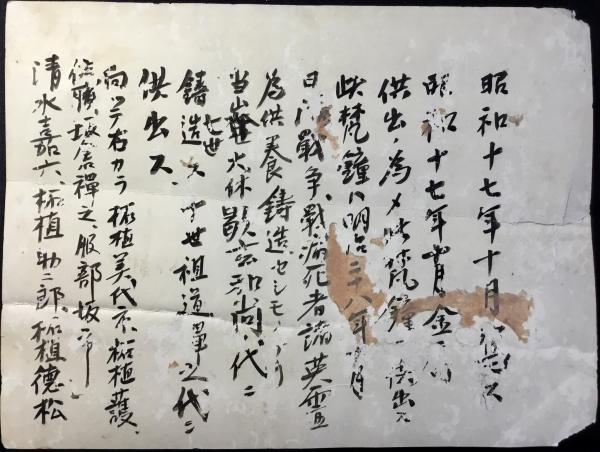 昭和十七年十月
昭和十七年 月金
供出ノ為メ此梵鐘ヲ供出ス
此梵鐘ハ明治二十八年 月
日清戦争、戦病死者諸英霊
為供養鋳造セシモノナリ
当山 世火休歇雲和尚ノ代ニ
鋳造ス 世祖道單之代ニ
供出ス
向ツテ右カラ柘植美代衣、柘植護、
住職、坂倉禅之、服部坂
清水嘉六、柘植助二郎、柘植徳松